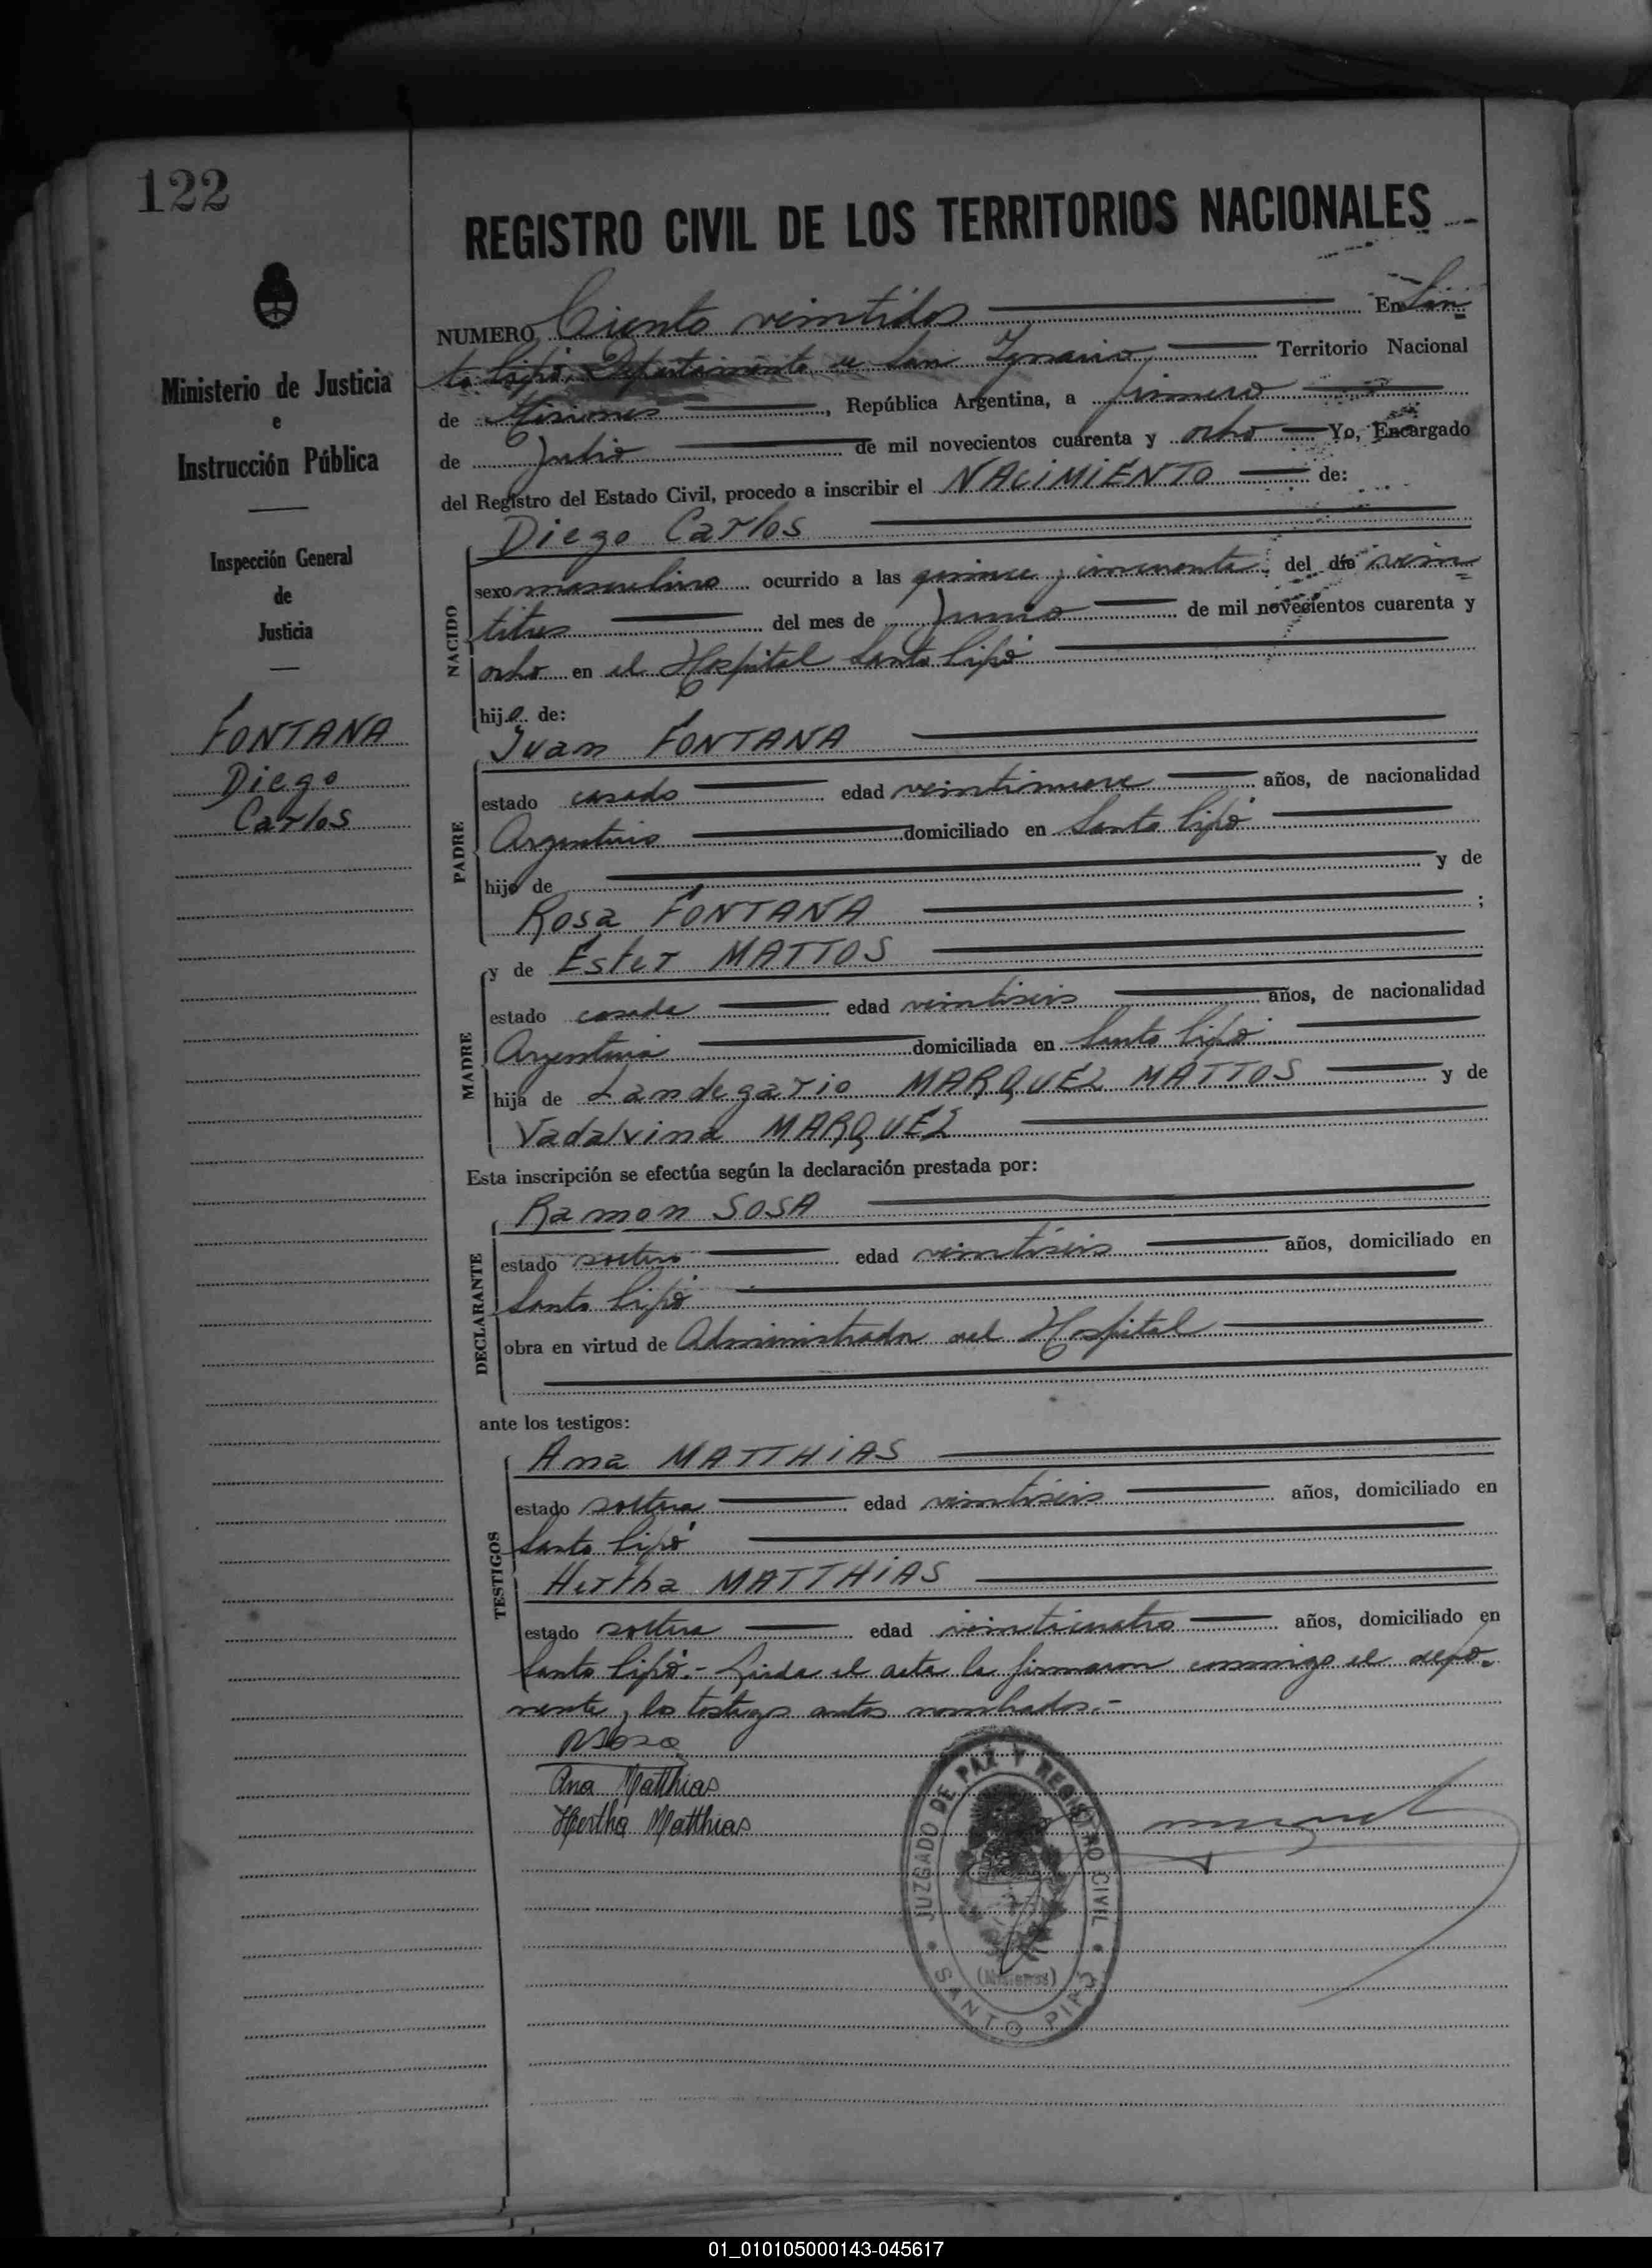 122
REGISTRO CIVIL DE LOS TERRITORIOS NACIONALES
Ministerio de Justicia
e
Instrucción Pública
Inspección General
de
Justicia
FONTANA
Diego
Carlos
NUMERO Ciento veintidos En San
to Pipó, Departamento de San Ignacio, Territorio Nacional
de Misiones, República Argentina, a primero
de Julio de mil novecientos cuarenta y ocho Yo, Encargado
del Registro del Estado Civil, procedo a inscribir el NACIMIENTO de:
NACIDO
Diego Carlos
sexo masculino ocurrido a las quince y cincuenta del día vein
titres del mes de Junio de mil novecientos cuarenta y
ocho en el Hospital Santo Pipó
hijo de:
PADRE
Juan FONTANA
estado casado edad veintinueve años, de nacionalidad
Argentino domiciliado en Santo Pipó
hijo de y de
Rosa FONTANA ;
MADRE
y de Ester MATTOS
estado casada edad veintiseis años, de nacionalidad
Argentina domiciliada en Santo Pipó
hija de Landegario MARQUEZ MATTOS y de
Vadalvina MARQUEZ
Esta inscripción se efectúa según la declaración prestada por:
DECLARANTE
Ramon SOSA
estado soltero edad veintiseis años, domiciliado en
Santo Pipó
obra en virtud de Administrador del Hospital
ante los testigos:
TESTIGOS
Ana MATTHIAS
estado soltera edad veintiseis años, domiciliado en
Santo Pipó
Hertha MATTHIAS
estado soltera edad veinticuatro años, domiciliado en
Santo Pipó.- Leida el acta la firmaron conmigo el depo=
nente y los testigos antes nombrados.-
RSosa
Ana Matthias
Hertha Matthias
JUZGADO DE PAZ Y REGISTRO CIVIL
(Misiones)
SANTO PIPÓ
01_010105000143-045617